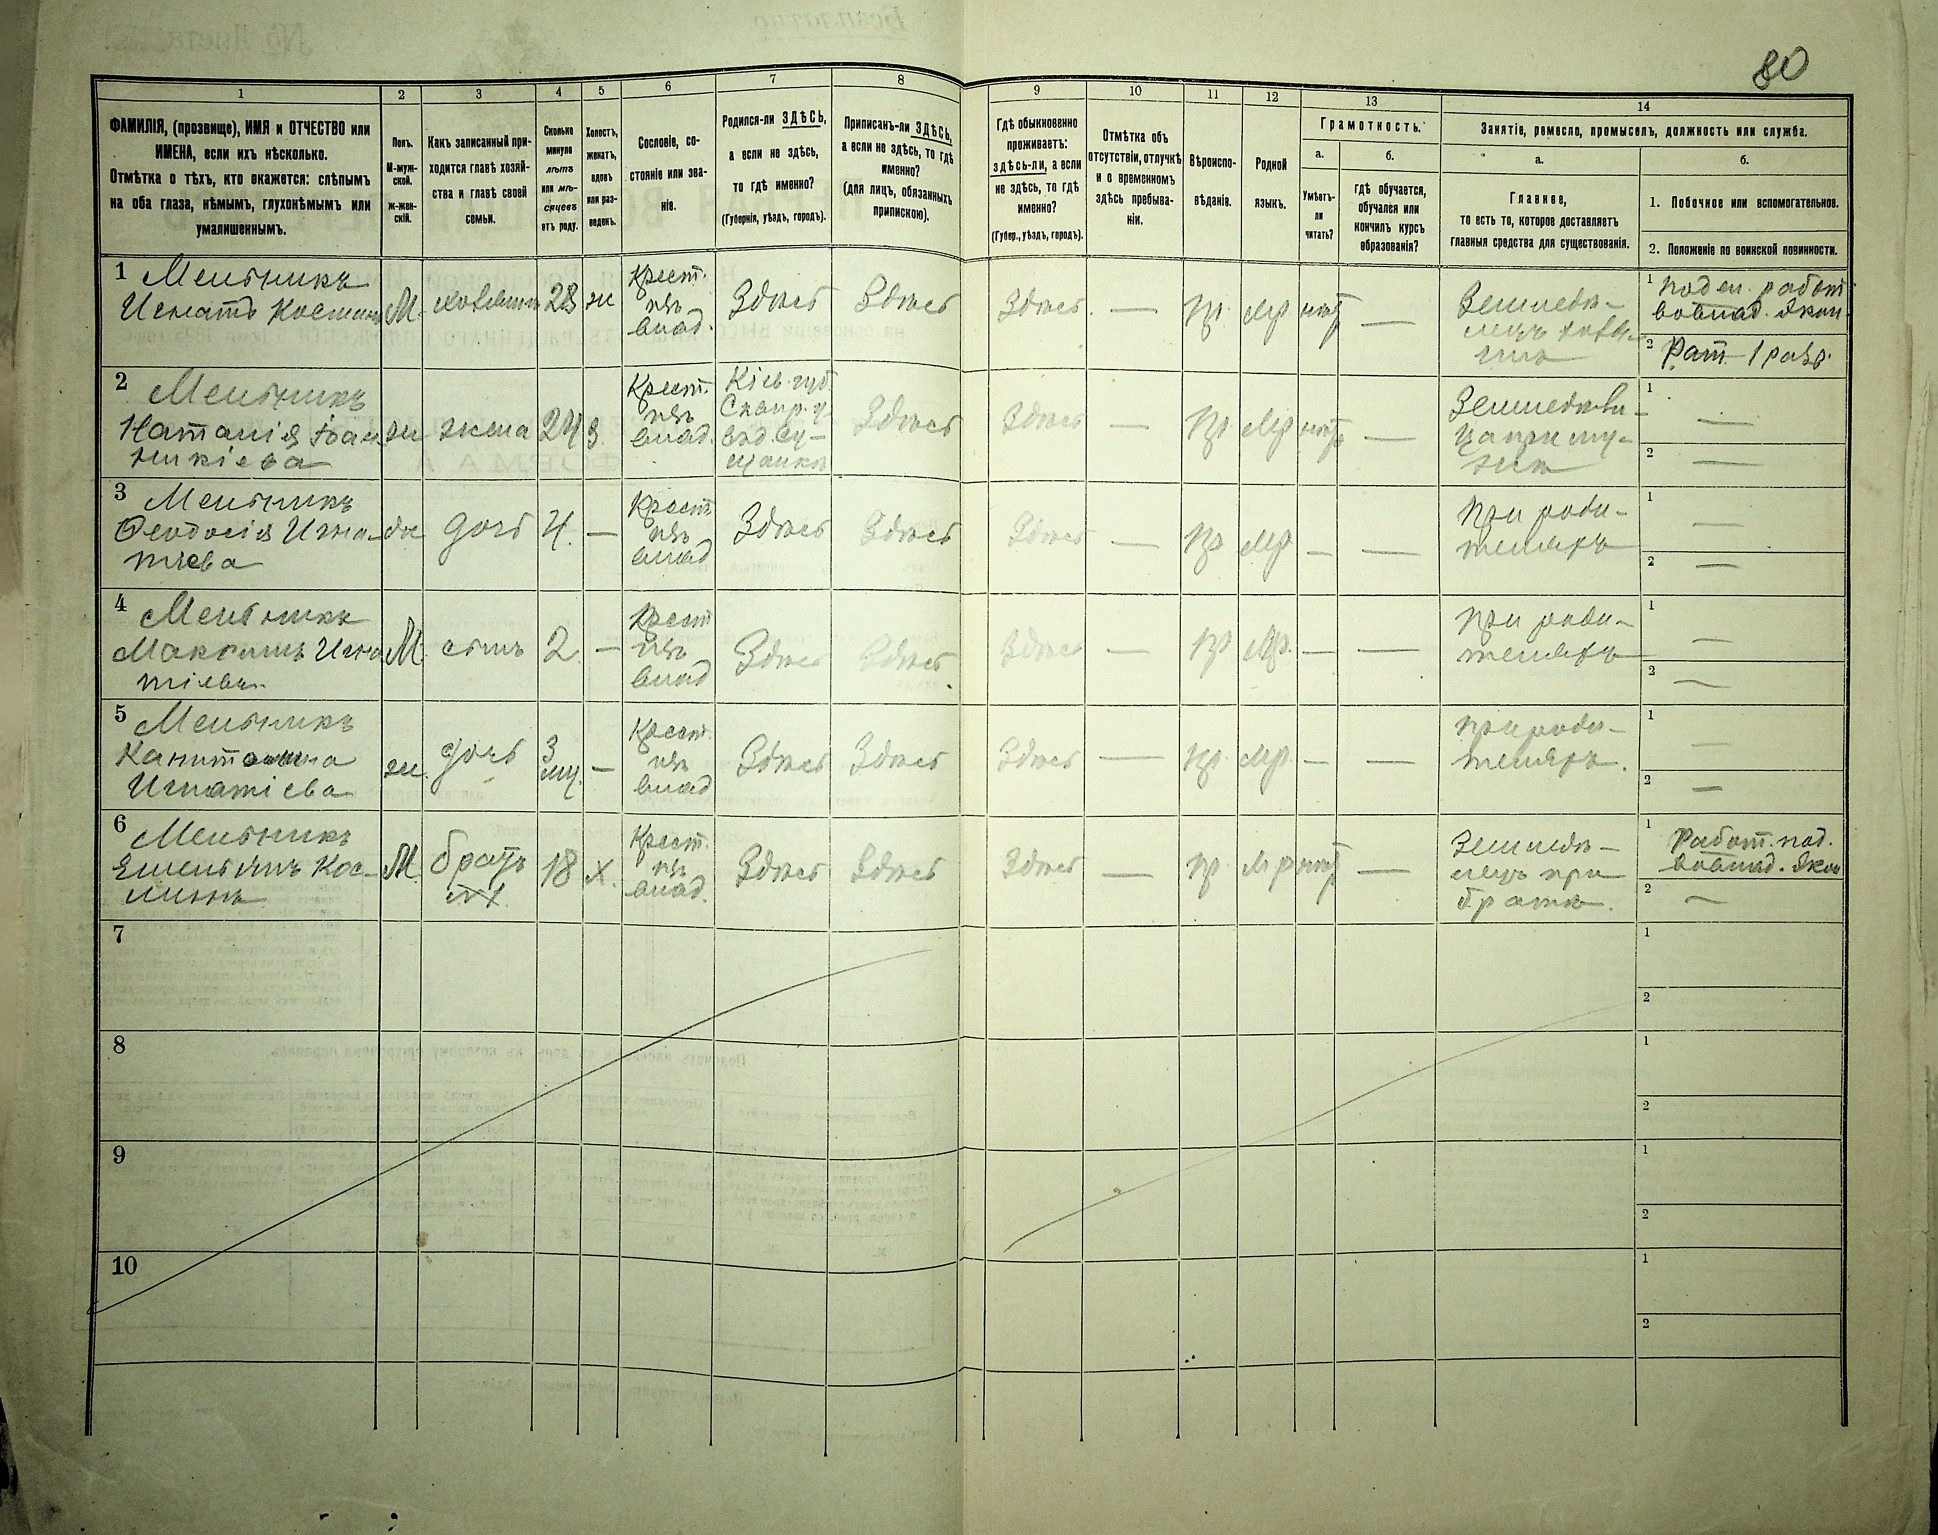 80
1
2
3
4
5
6
7
8
9
10
11
12
13
14
ФАМИЛІЯ, (прозвище), ИМЯ и ОТЧЕСТВО или
ИМЕНА, если ихъ нѣсколько.
Отмѣтка о тѣхъ, кто окажется: слѣпымъ
на оба глаза, нѣмымъ, глухонѣмымъ или
умалишеннымъ.
Полъ.
М-муж-
ской.
ж-жен-
скій.
Какъ записанный при-
ходится главѣ хозяй-
ства и главѣ своей
семьи.
Сколько
минуло
лѣтъ
или мѣ-
сяцевъ
отъ роду.
Холостъ,
женатъ,
вдовъ
или раз-
веденъ.
Сословіе, со-
стояніе или зва-
ніе.
Родился-ли ЗДѢСЬ,
а если не здѣсь,
то гдѣ именно?
(Губернія, уѣздъ, городъ).
Приписанъ-ли ЗДѢСЬ,
а если не здѣсь, то гдѣ
именно?
(для лицъ, обязанныхъ
припискою).
Гдѣ обыкновенно
проживаетъ:
здѣсь-ли, а если
не здѣсь, то гдѣ
именно?
(Губер., уѣздъ, городъ).
Отмѣтка объ
отсутствіи, отлучкѣ
и о временномъ
здѣсь пребыва-
ніи.
Вѣроиспо-
вѣданіе.
Родной
языкъ.
Грамотность.
а.
Умѣетъ-
ли
читать?
б.
гдѣ обучается,
обучался или
кончилъ курсъ
образованія?
Занятіе, ремесло, промыселъ, должность или служба.
а.
Главное,
то есть то, которое доставляетъ
главныя средства для существованія.
б.
1. Побочное или вспомогательное.
2. Положеніе по воинской повинности.
1 Мельникъ
Игнатъ Косминъ
М.
хозяинъ
28
ж
Крест.
изъ
влад.
Здѣсь
Здѣсь
Здѣсь
—
пр.
мр.
нѣтъ
—
Земледѣ-
лецъ хозя-
инъ
1 поден. работ
вовлад. Экон.
2 Рат. 1 разр.
2 Мельникъ
Наталія Іоан
никіева
ж
жена
24
з
Крест.
изъ
влад.
Кіев. губ.
Сквир. у.
Здѣсь
Здѣсь
—
пр.
мр
нѣтъ
—
Земледѣли-
ца при му-
жѣ
1 —
2 —
3 Мельникъ
Ѳеодосія Игна-
тіева
ж
дочь
4.
—
Крест.
изъ
влад
Здѣсь
Здѣсь
Здѣсь
—
пр
мр
—
—
При роди-
теляхъ
1 —
2 —
4 Мельникъ
Максимъ Игна
тіевъ
М.
сынъ
2
—
Крест
изъ
влад
Здѣсь
Здѣсь
Здѣсь
—
пр
мр.
—
—
При роди-
теляхъ
1 —
2 —
5 Мельникъ
Капитолина
Игнатіева
ж.
дочь
3
мц.
—
Крест.
изъ
влад
Здѣсь
Здѣсь
Здѣсь
—
пр.
мр.
—
—
При роди-
теляхъ.
1 —
2 —
6 Мельникъ
Емельянъ Кос-
минъ
М.
братъ
18
х.
Крест.
изъ
влад.
Здѣсь
Здѣсь
Здѣсь
—
пр
мр
нѣтъ
—
Земледѣ-
лецъ при
братѣ.
1 Работ. под.
вовлад. Экон
2 —
7
1
2
8
1
2
9
1
2
10
1
2